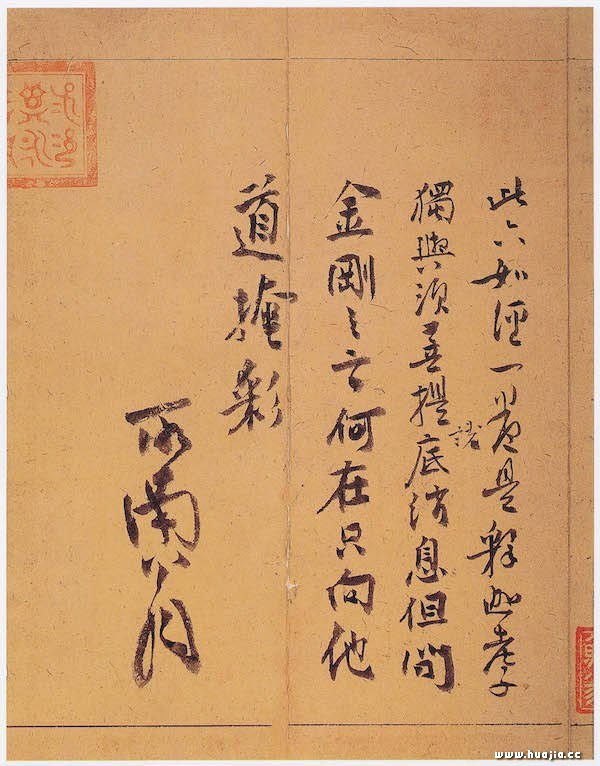 此六如經一卷是釋迦老子
獨與須菩提說底消息但問
金剛之言何在只向他
道掩彩
所南翁
www.huajia.cc